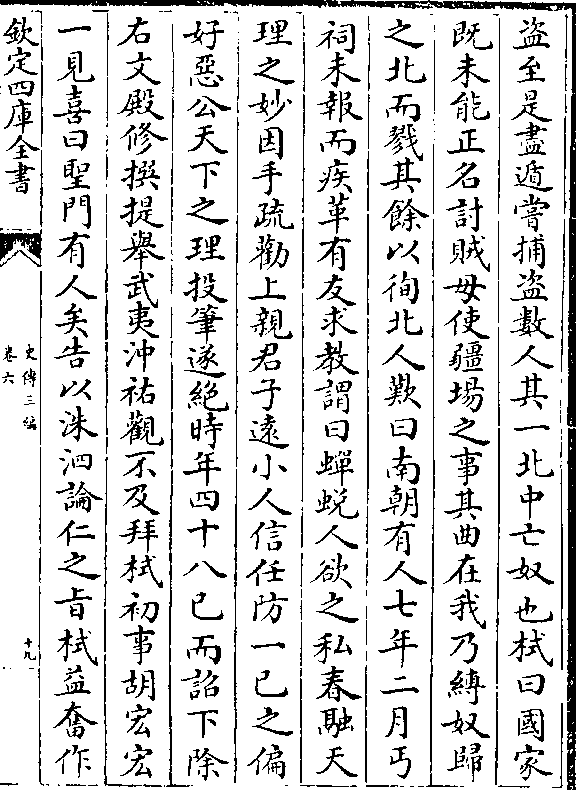 盜至是盡遁嘗捕盜數人其一北中亡奴也栻曰國家
既未能正名討賊毋使疆埸之事其曲在我乃縛奴歸
之北而戮其餘以徇北人歎曰南朝有人七年二月丐
祠未報而疾革有友求教謂曰蟬蛻人欲之私春融天
理之妙因手疏勸上親君子遠小人信任防一己之偏
好惡公天下之理投筆遂絕時年四十八已而詔下除
右文殿修撰提舉武夷沖祐觀不及拜栻初事胡宏宏
一見喜曰聖門有人矣告以洙泗論仁之旨栻益奮作
欽定四庫全書
史傳三編
卷六
十九